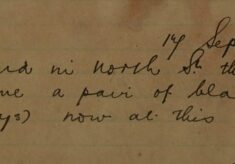 14 Sep
and in North St. th
me a pair of bla
ys) now at this